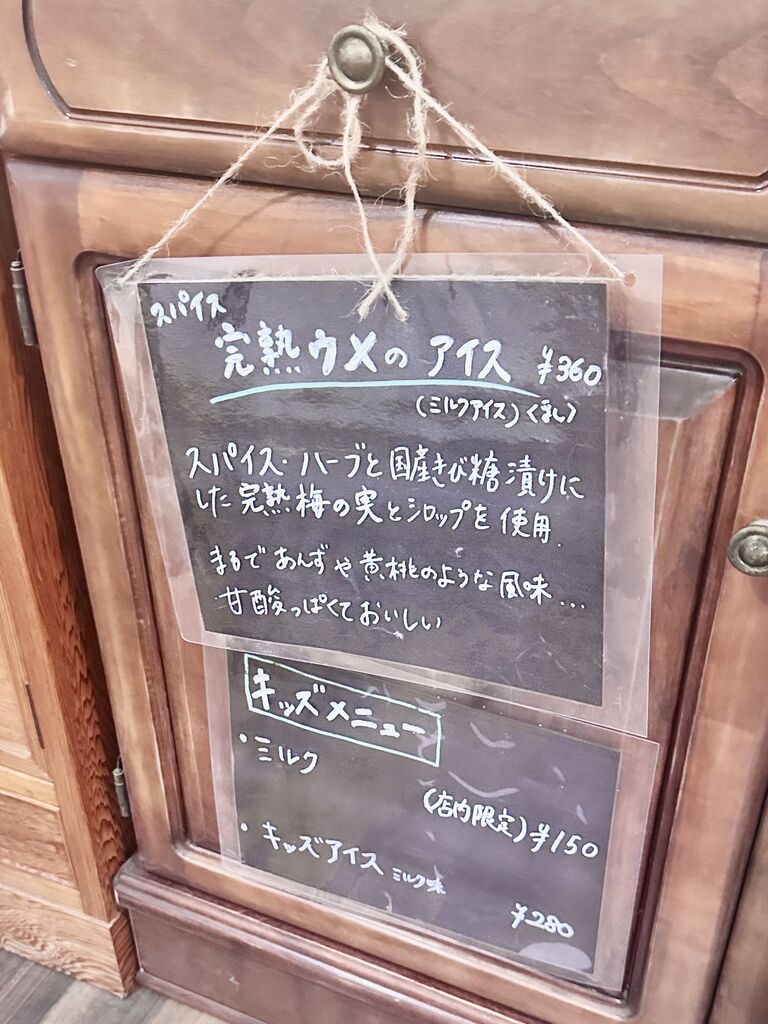 スパイス
完熟ウメの アイス ¥360
(ミルクアイス)〈乳〉
スパイス・ハーブと国産きび糖漬けに
した完熟梅の実とシロップを使用.
まるであんずや黄桃のような風味...
甘酸っぱくておいしい
キッズメニュー
・ミルク
(店内限定)¥150
・キッズアイス ミルク味
¥280